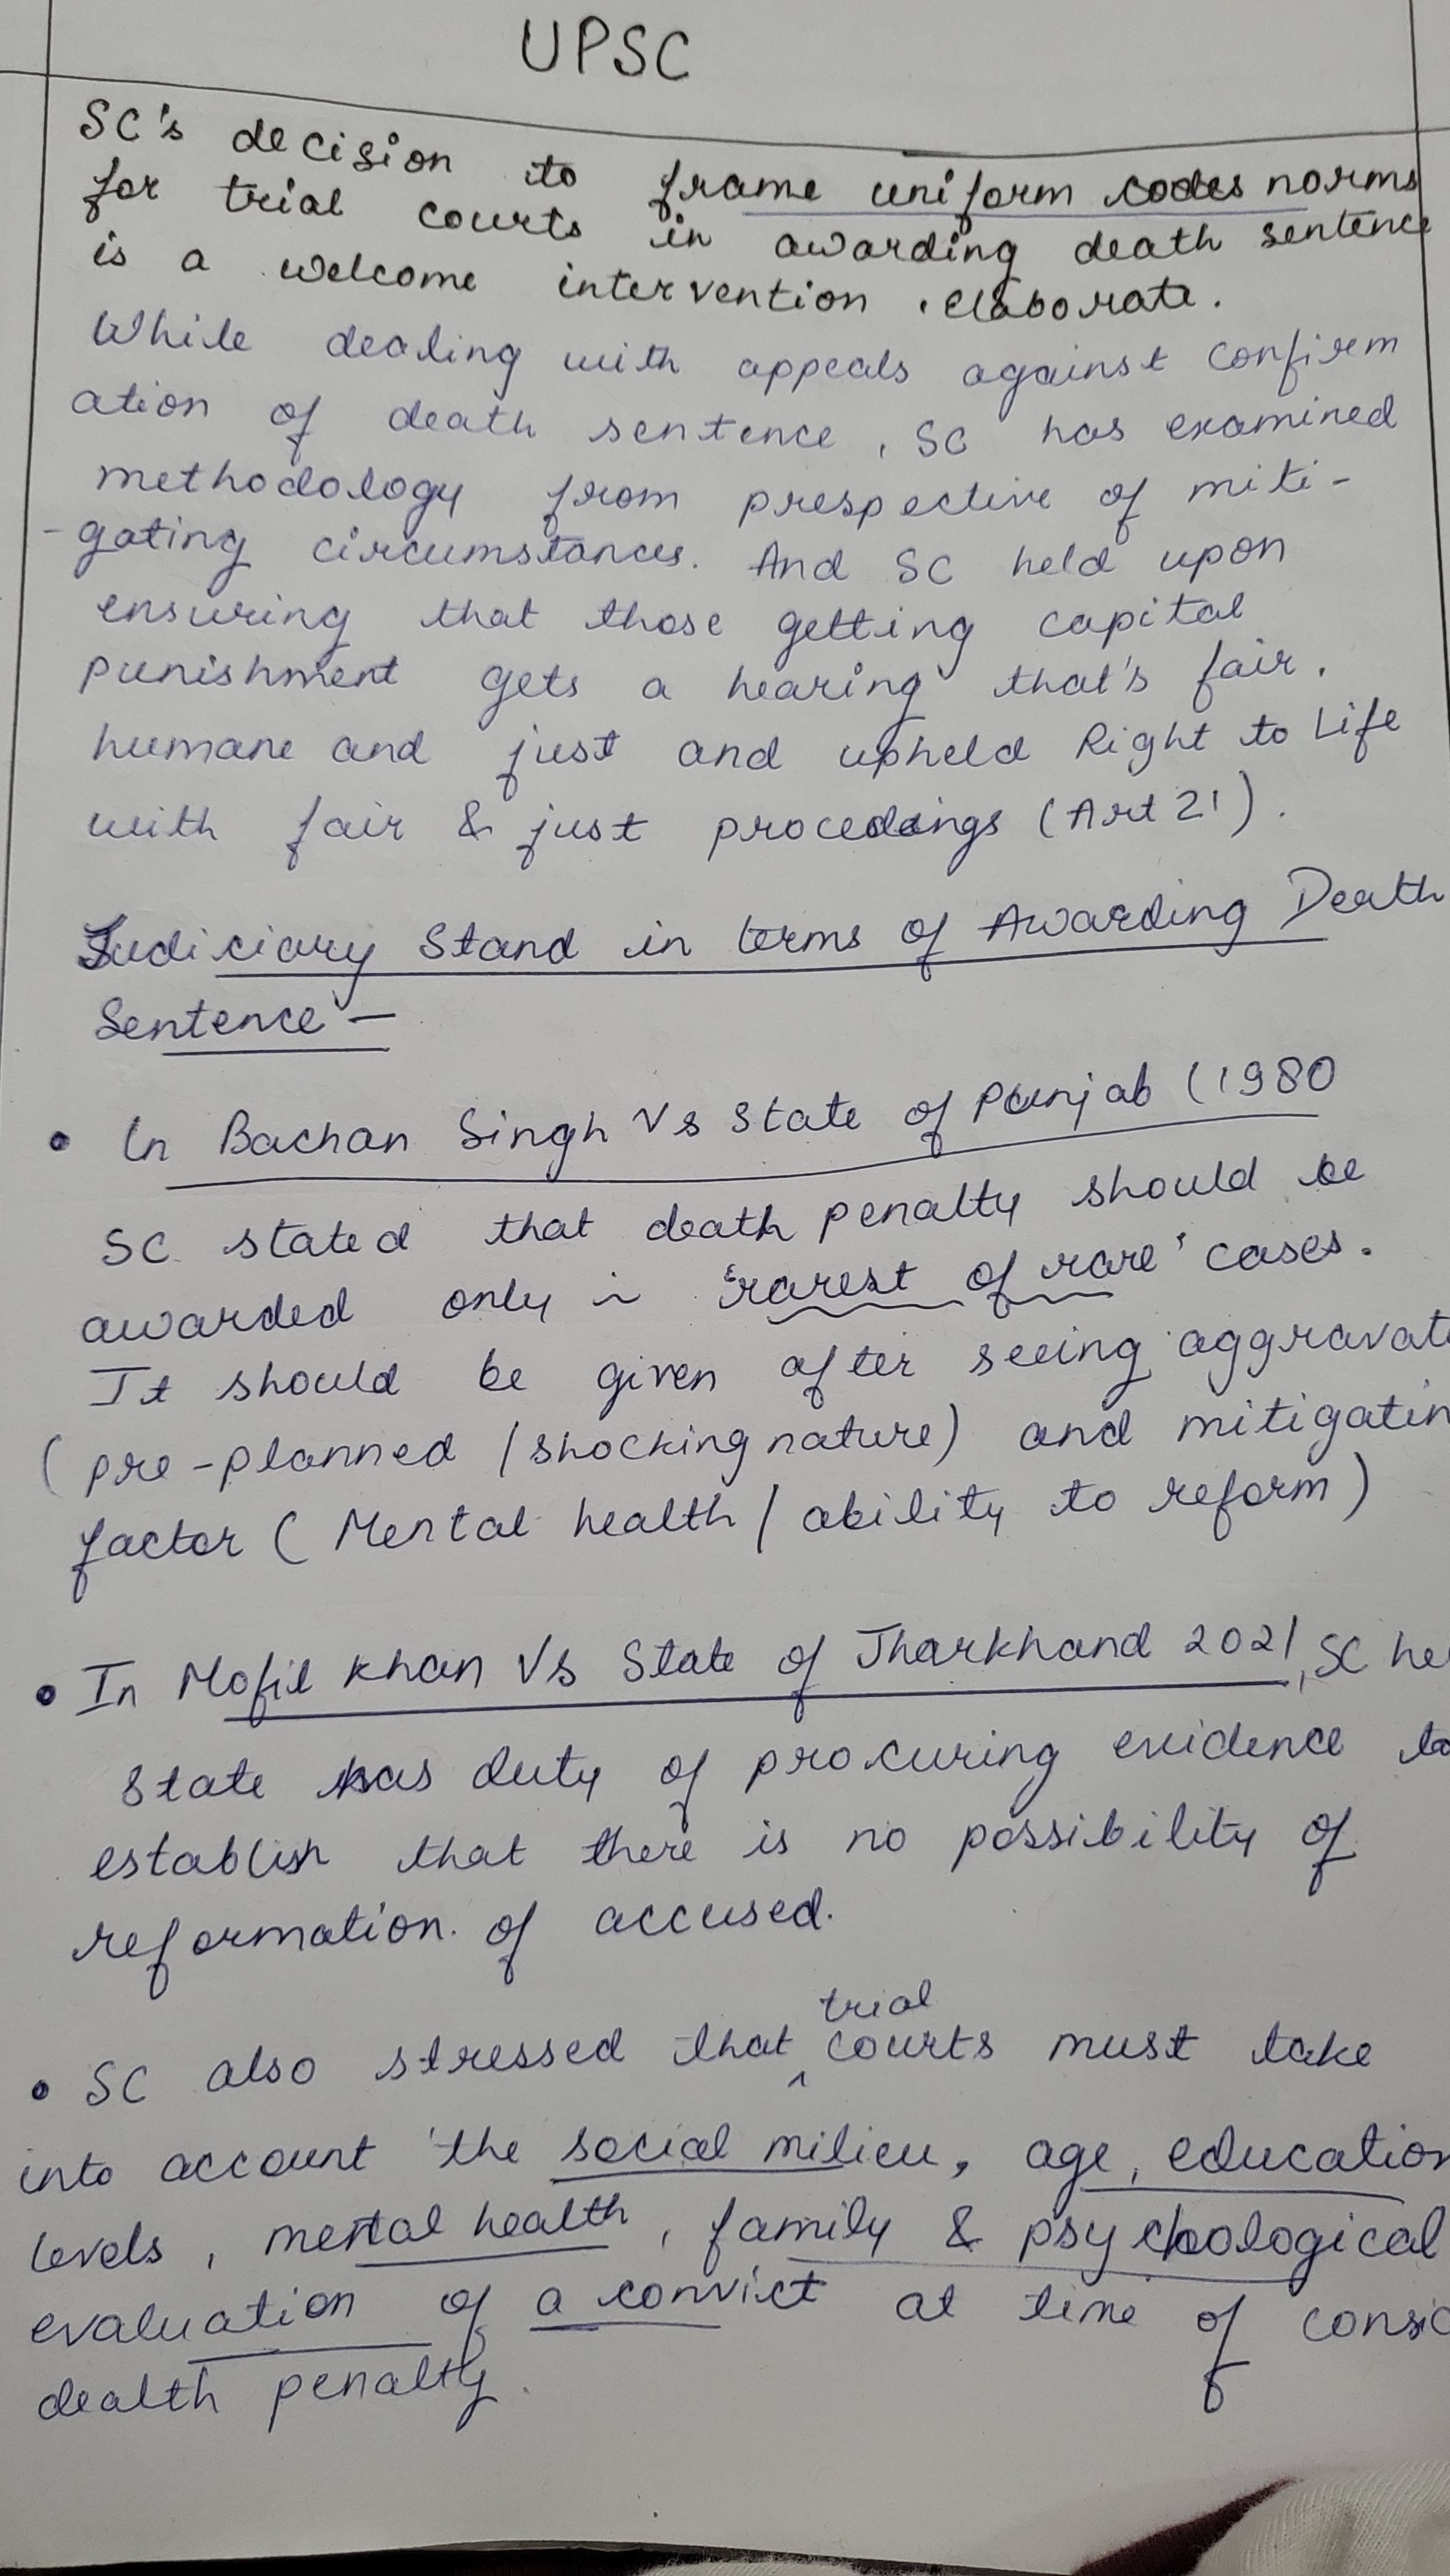 UPSC
SC's decision to frame uniform codes norms
for trial courts in awarding death sentence
is a welcome intervention. Elaborate.
While dealing with appeals against confirm
ation of death sentence, SC has examined
methodology from prespective of miti-
-gating circumstances. And SC held upon
ensuring that those getting capital
punishment gets a hearing that's fair,
humane and just and upheld Right to Life
with fair & just procedings (Art 21).
Judiciary Stand in terms of Awarding Death
Sentence -
• In Bachan Singh Vs State of Punjab (1980
SC stated that death penalty should be
awarded only in 'rarest of rare' cases.
It should be given after seeing aggravat
(pre-planned / shocking nature) and mitigatin
factor (Mental health / ability to reform)
• In Mofil Khan Vs State of Jharkhand 2021, SC he
State has duty of procuring evidence to
establish that there is no possibility of
reformation. of accused.
• SC also stressed that trial courts must take
into account the social milieu, age, education
levels, mental health, family & psychological
evaluation of a convict at time of consid
dealth penalty.